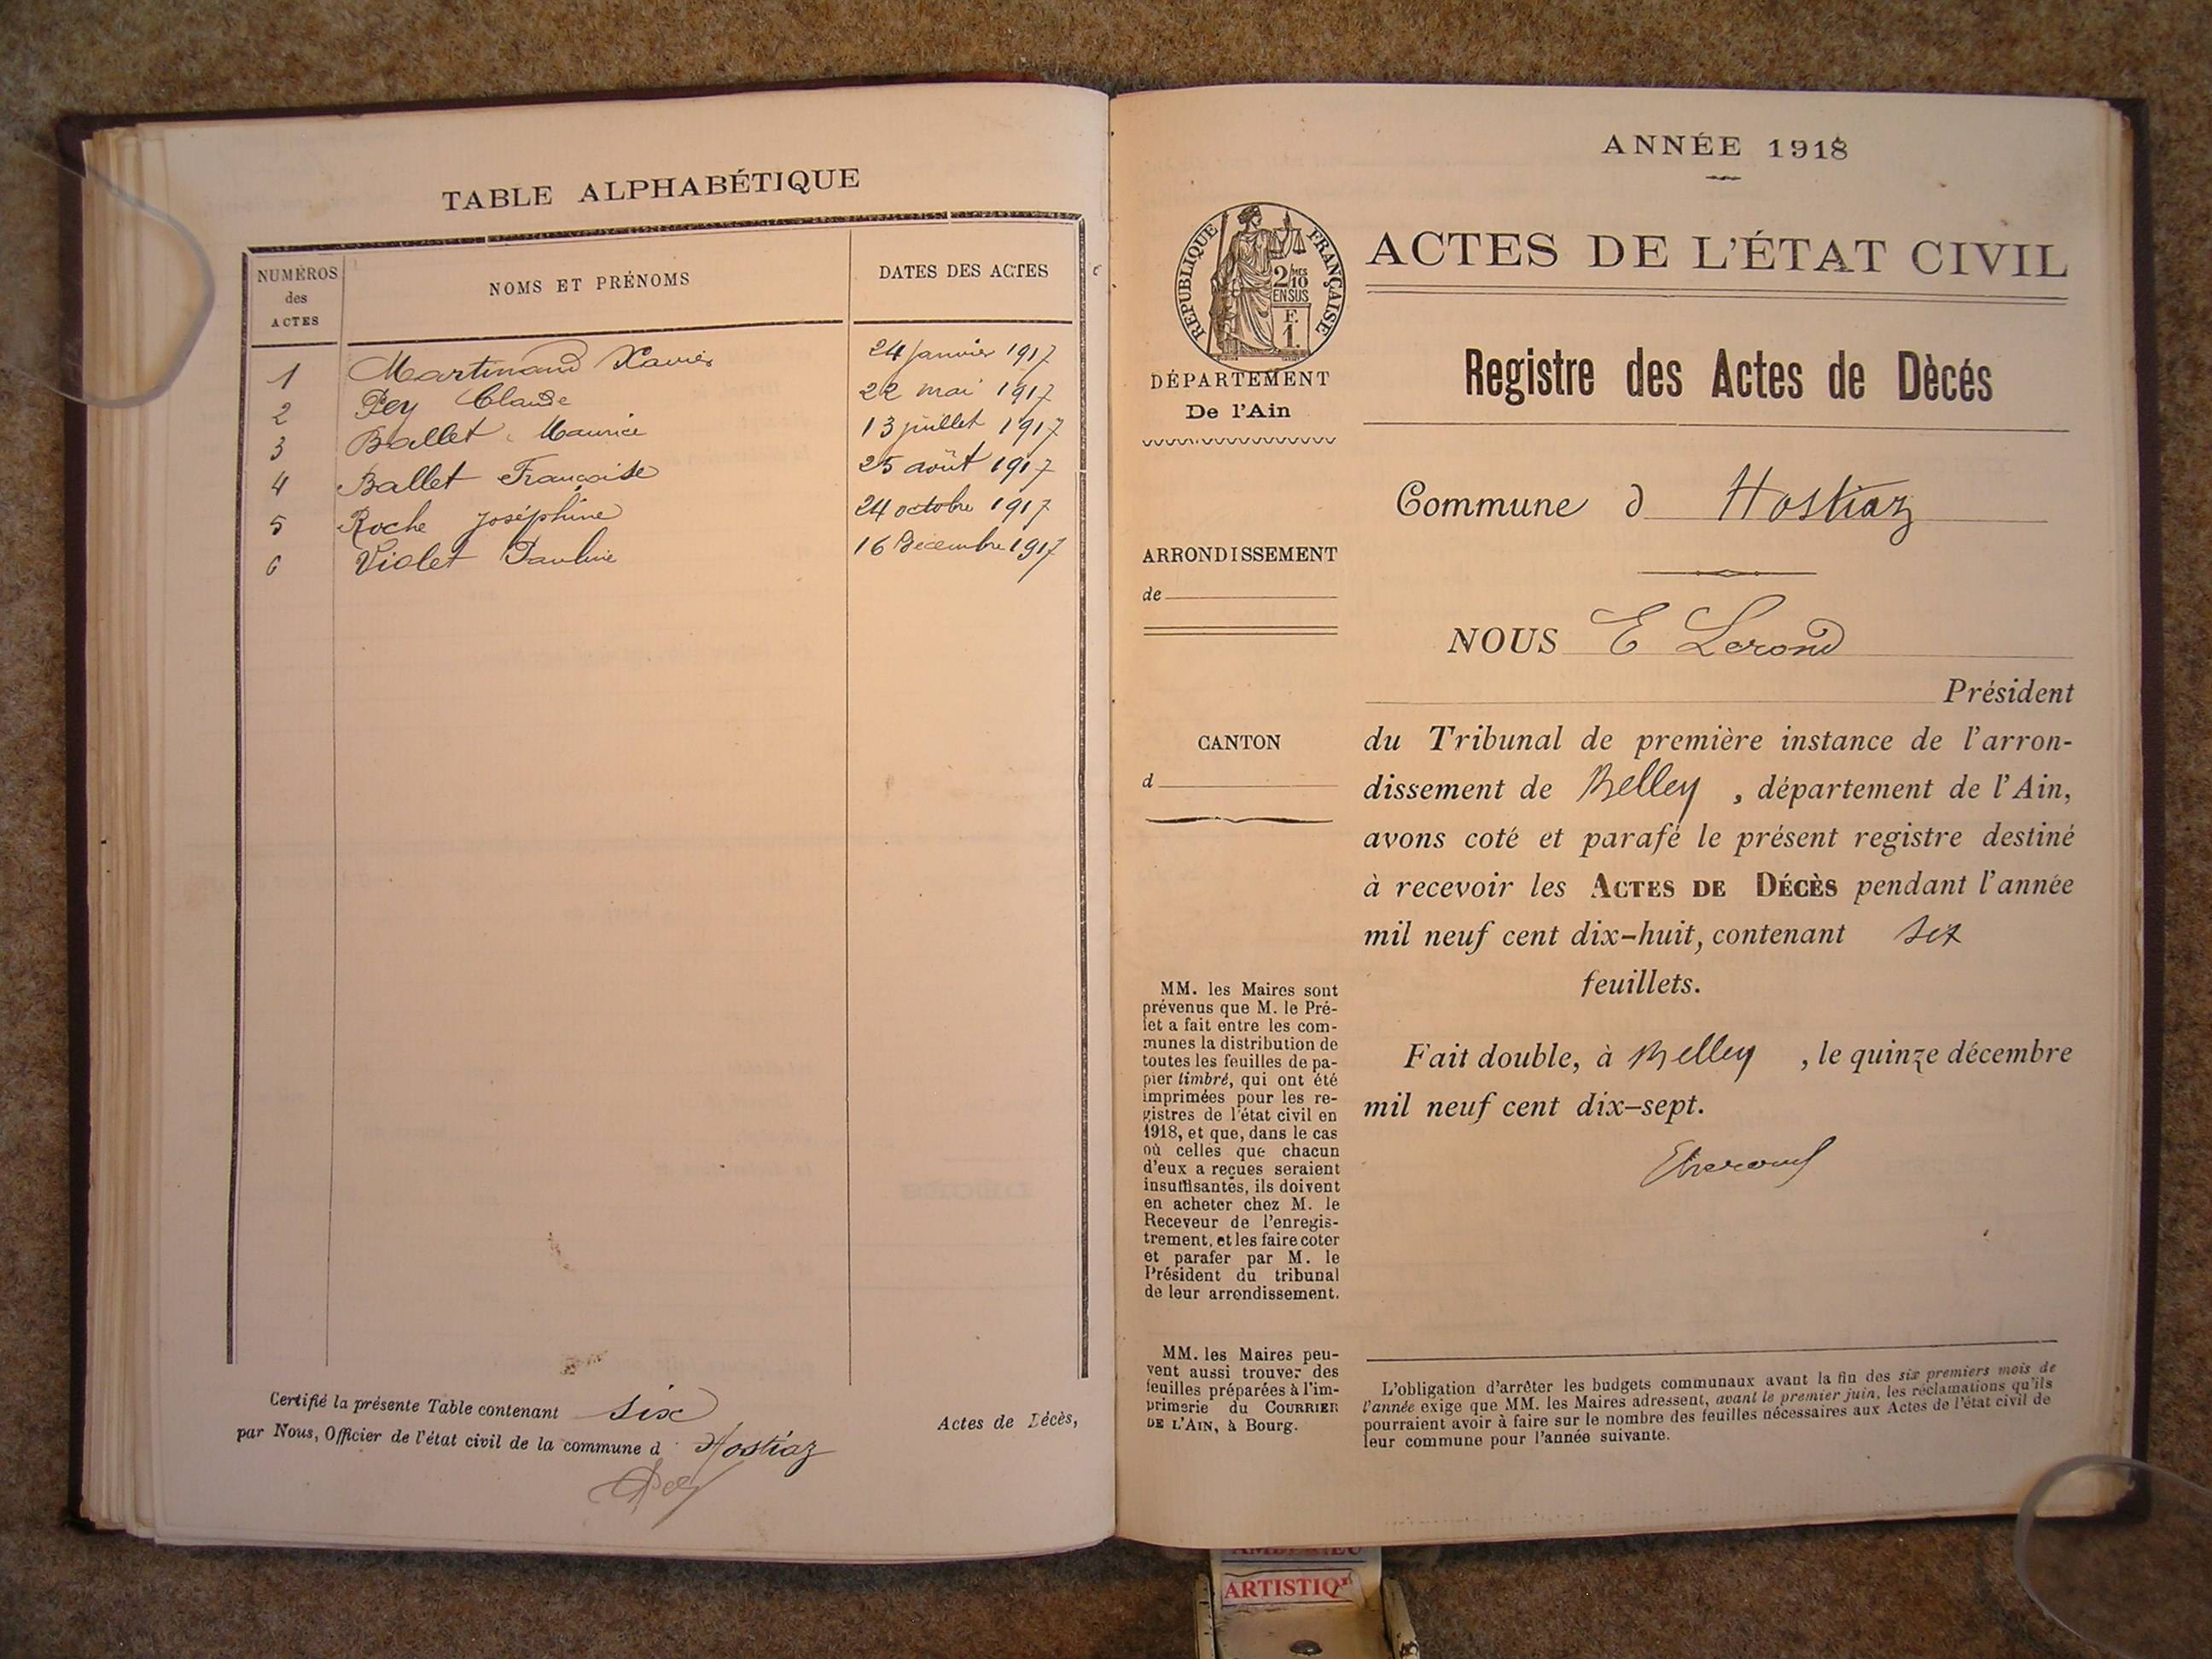 TABLE ALPHABÉTIQUE
NUMÉROS des ACTES
NOMS ET PRÉNOMS
DATES DES ACTES
1 Martinand Xavier 24 janvier 1917
2 Pey Claude 22 mai 1917
3 Ballet Maurice 13 juillet 1917
4 Ballet Françoise 25 août 1917
5 Roche Joséphine 24 octobre 1917
6 Violet Pauline 16 Décembre 1917
Certifié la présente Table contenant six Actes de Décès,
par Nous, Officier de l'état civil de la commune d Hostiaz
ANNÉE 1918
RÉPUBLIQUE FRANÇAISE
2/10 MES
EN SUS
F.
1.
DÉPARTEMENT
De l'Ain
ARRONDISSEMENT
de
CANTON
d
MM. les Maires sont
prévenus que M. le Pré-
fet a fait entre les com-
munes la distribution de
toutes les feuilles de pa-
pier timbré, qui ont été
imprimées pour les re-
gistres de l'état civil en
1918, et que, dans le cas
où celles que chacun
d'eux a reçues seraient
insuffisantes, ils doivent
en acheter chez M. le
Receveur de l'enregis-
trement, et les faire coter
et parafer par M. le
Président du tribunal
de leur arrondissement.
MM. les Maires peu-
vent aussi trouver des
feuilles préparées à l'im-
primerie du COURRIER
DE L'AIN, à Bourg.
ACTES DE L'ÉTAT CIVIL
Registre des Actes de Dècés
Commune d Hostiaz
NOUS E Lerond
Président
du Tribunal de première instance de l'arron-
dissement de Belley , département de l'Ain,
avons coté et parafé le présent registre destiné
à recevoir les ACTES DE DÉCÈS pendant l'année
mil neuf cent dix-huit, contenant six
feuillets.
Fait double, à Belley , le quinze décembre
mil neuf cent dix-sept.
L'obligation d'arrêter les budgets communaux avant la fin des six premiers mois de
l'année exige que MM. les Maires adressent, avant le premier juin, les réclamations qu'ils
pourraient avoir à faire sur le nombre des feuilles nécessaires aux Actes de l'état civil de
leur commune pour l'année suivante.